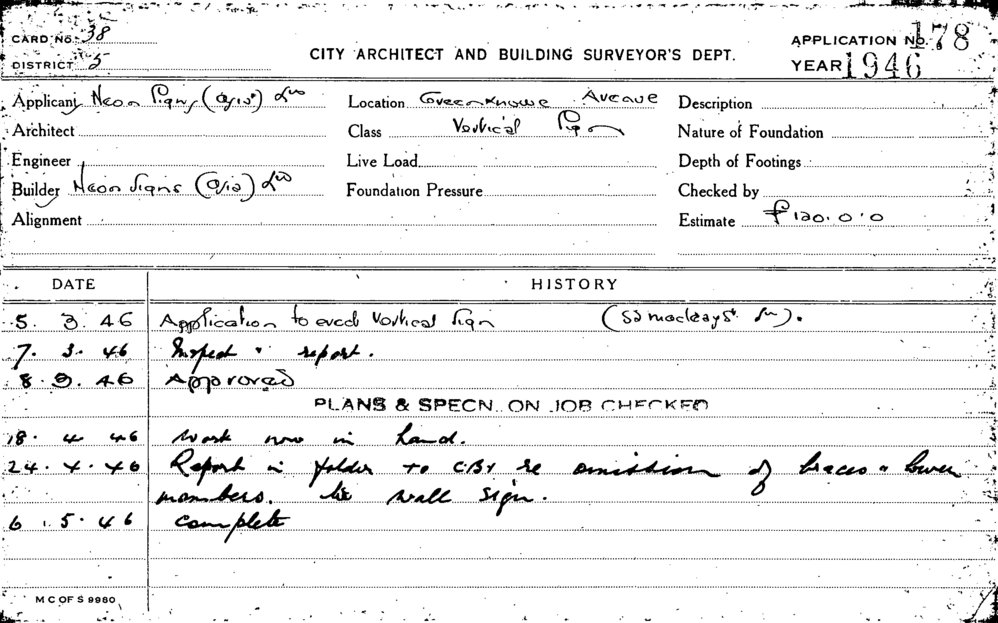 CARD No. 38
DISTRICT 5
CITY ARCHITECT AND BUILDING SURVEYOR'S DEPT.
APPLICATION No. 178
YEAR 1946
Applicant Neon Signs (A/sia) Ltd
Location Greenknowe Avenue
Description
Architect
Class Vertical Sign
Nature of Foundation
Engineer
Live Load
Depth of Footings
Builder Neon Signs (A/sia) Ltd
Foundation Pressure
Checked by
Alignment
Estimate £120.0.0
DATE HISTORY
5. 3. 46 Application to erect Vertical Sign (52 Macleay St.).
7. 3. 46 Inspect & report.
8. 3. 46 Approved
PLANS & SPECN. ON JOB CHECKED
18. 4 46 Work now in hand.
24. 4. 46 Report in folder to CBS re omission of braces & lower
members. wall sign.
6. 5. 46 Complete
M C OF S 9980